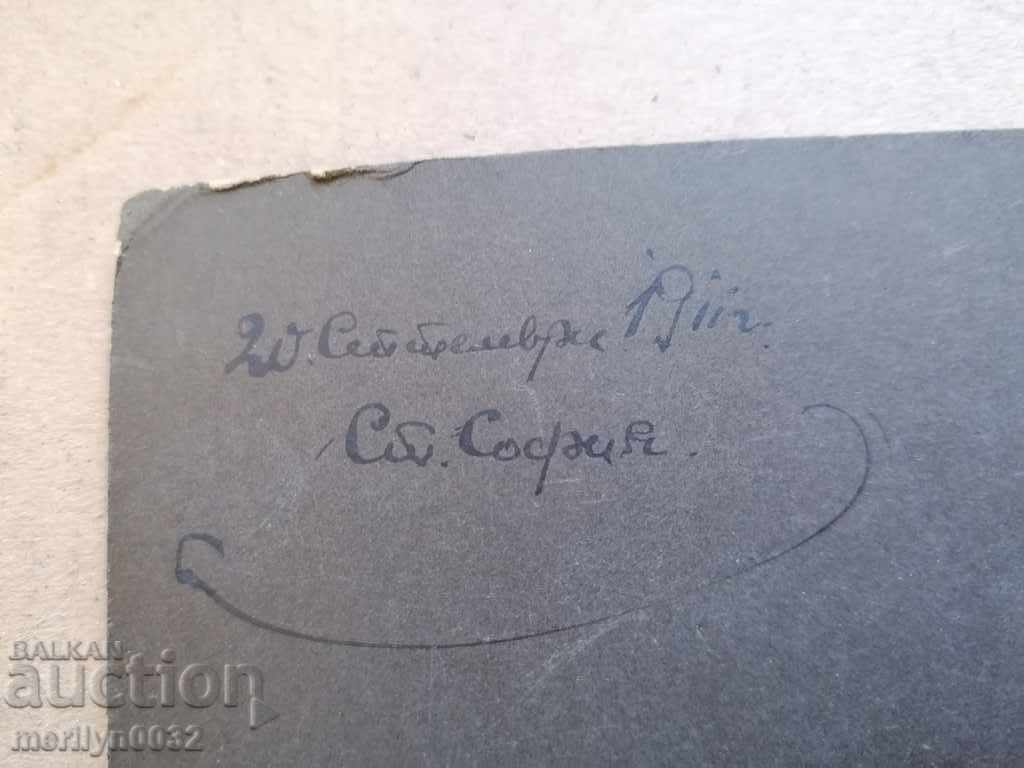 20. Септемврий 1911г.
Ст. София.
BALKAN
auction
merilyn0032